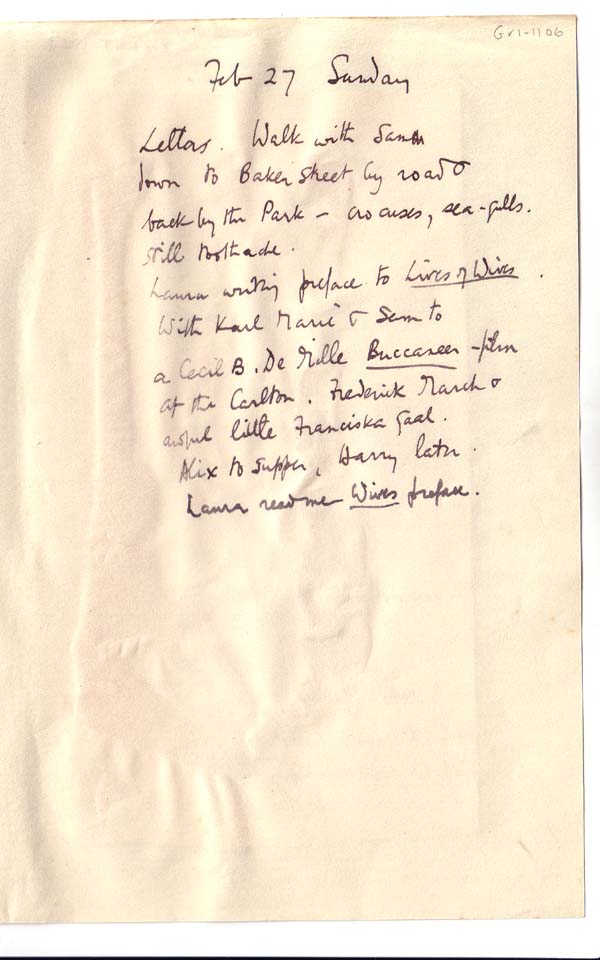 GV1-1106
Feb 27 Sunday
Letters. Walk with Sam
down to Baker Street by road &
back by the Park - crocuses, sea-gulls.
Still toothache.
Laura writing preface to Lives of Wives.
With Karl Marie & Sam to
a Cecil B. De Mille Buccaneer - film
at the Carlton. Frederick March &
awful little Franciska Gaal.
Alix to supper, Harry later.
Laura read me Wives preface.